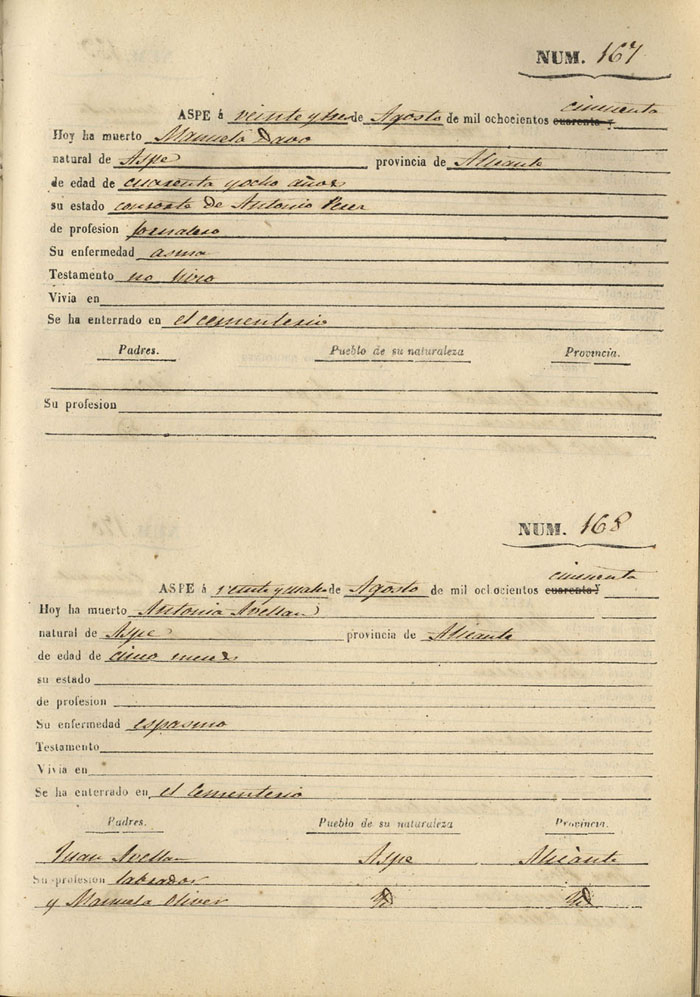 NUM. 167
cincuenta
ASPE á veinte y tres de Agosto de mil ochocientos cuarenta y
Hoy ha muerto Manuela Davo
natural de Aspe provincia de Alicante
de edad de cuarenta y ocho años
su estado consorte de Antonio Perez
de profesion jornalero
Su enfermedad asma
Testamento no hizo
Vivia en
Se ha enterrado en el cementerio
Padres. Pueblo de su naturaleza Provincia.
Su profesion
NUM. 168
cincuenta
ASPE á veinte y cuatro de Agosto de mil ochocientos cuarenta y
Hoy ha muerto Antonia Avellan
natural de Aspe provincia de Alicante
de edad de cinco meses
su estado
de profesion
Su enfermedad espasmo
Testamento
Vivia en
Se ha enterrado en el Cementerio
Padres. Pueblo de su naturaleza Provincia.
Juan Avellan Aspe Alicante
Su profesion labrador
y Manuela Oliver Yd Yd